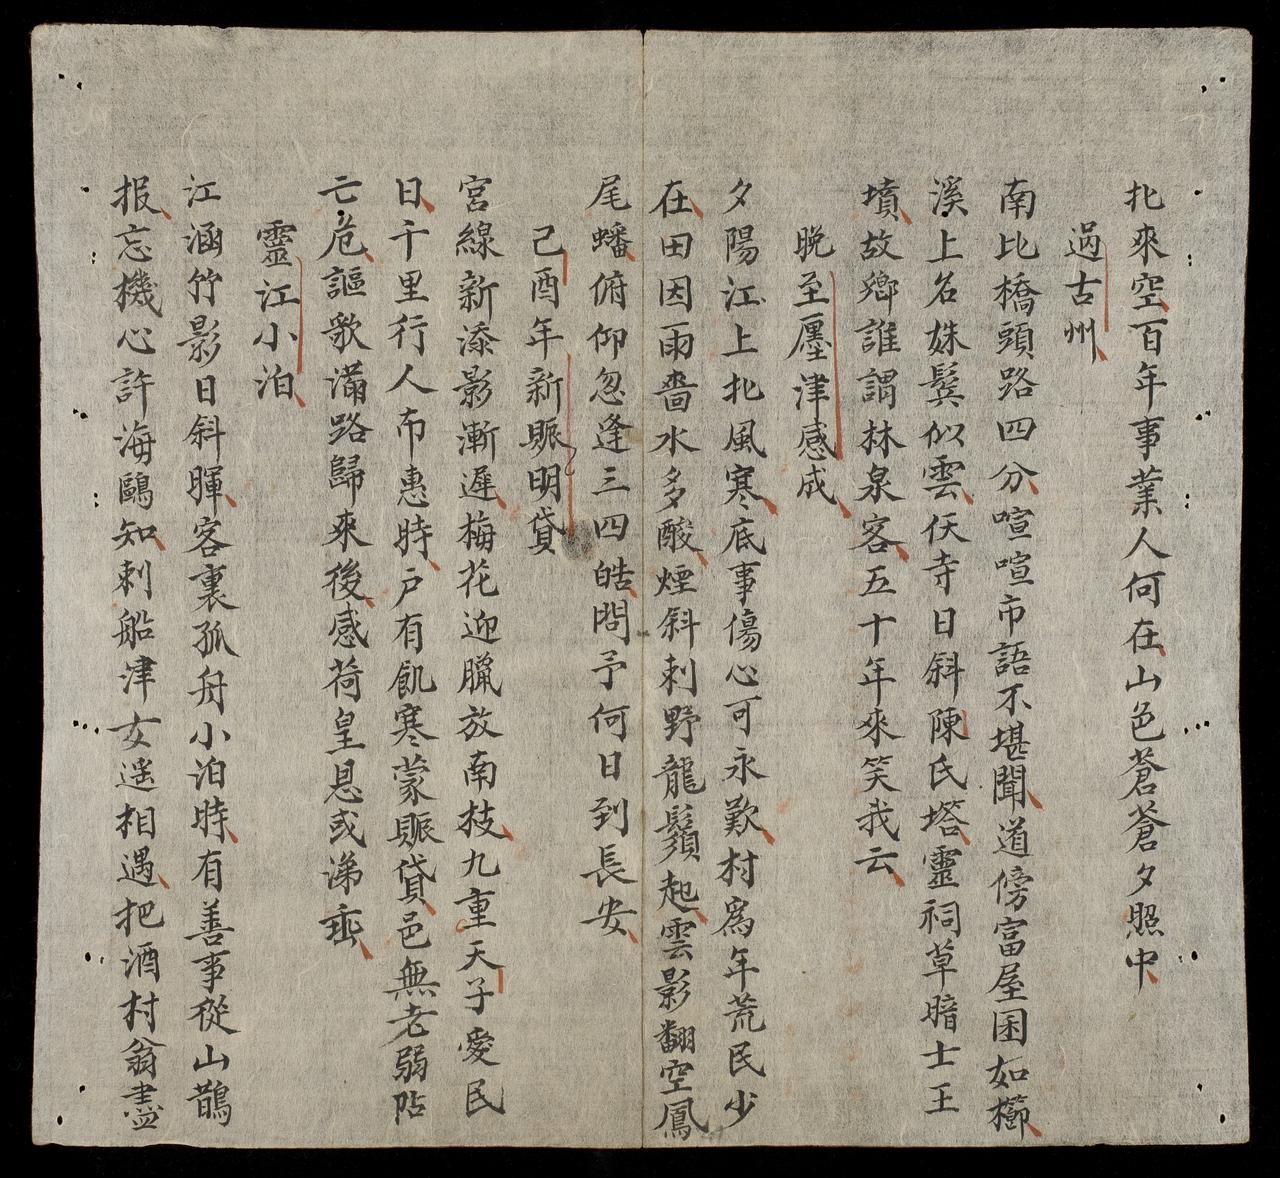 北來空百年事業人何在山色蒼蒼夕照中
過古州
南北橋頭路四分喧喧市語不堪聞道傍富屋困如櫛
溪上名姝鬓似雲仸寺日斜陳氏塔靈祠草暗士王
墳故鄉誰謂林泉客五十年來笑我云
晚至𢌅津感成
夕陽江上北風寒底事傷心可永歎村為年荒民少
在田因雨嗇水多酸煙斜刺野龍鬚起雲影翻空鳳
尾蟠俯仰忽逢三四皓問予何日到長安
己酉年新賑明貸
宮線新添影漸遲梅花迎臘放南枝九重天子愛民
日千里行人布惠時戶有飢寒蒙賑貸邑無老弱阽
亡危謳歌滿路歸來後感荷皇恩或涕垂
靈江小泊
江涵竹影日斜暉客裏孤舟小泊時有善事從山鵲
报忘機心許海鷗知刺船津女遥相遇把酒村翁盡